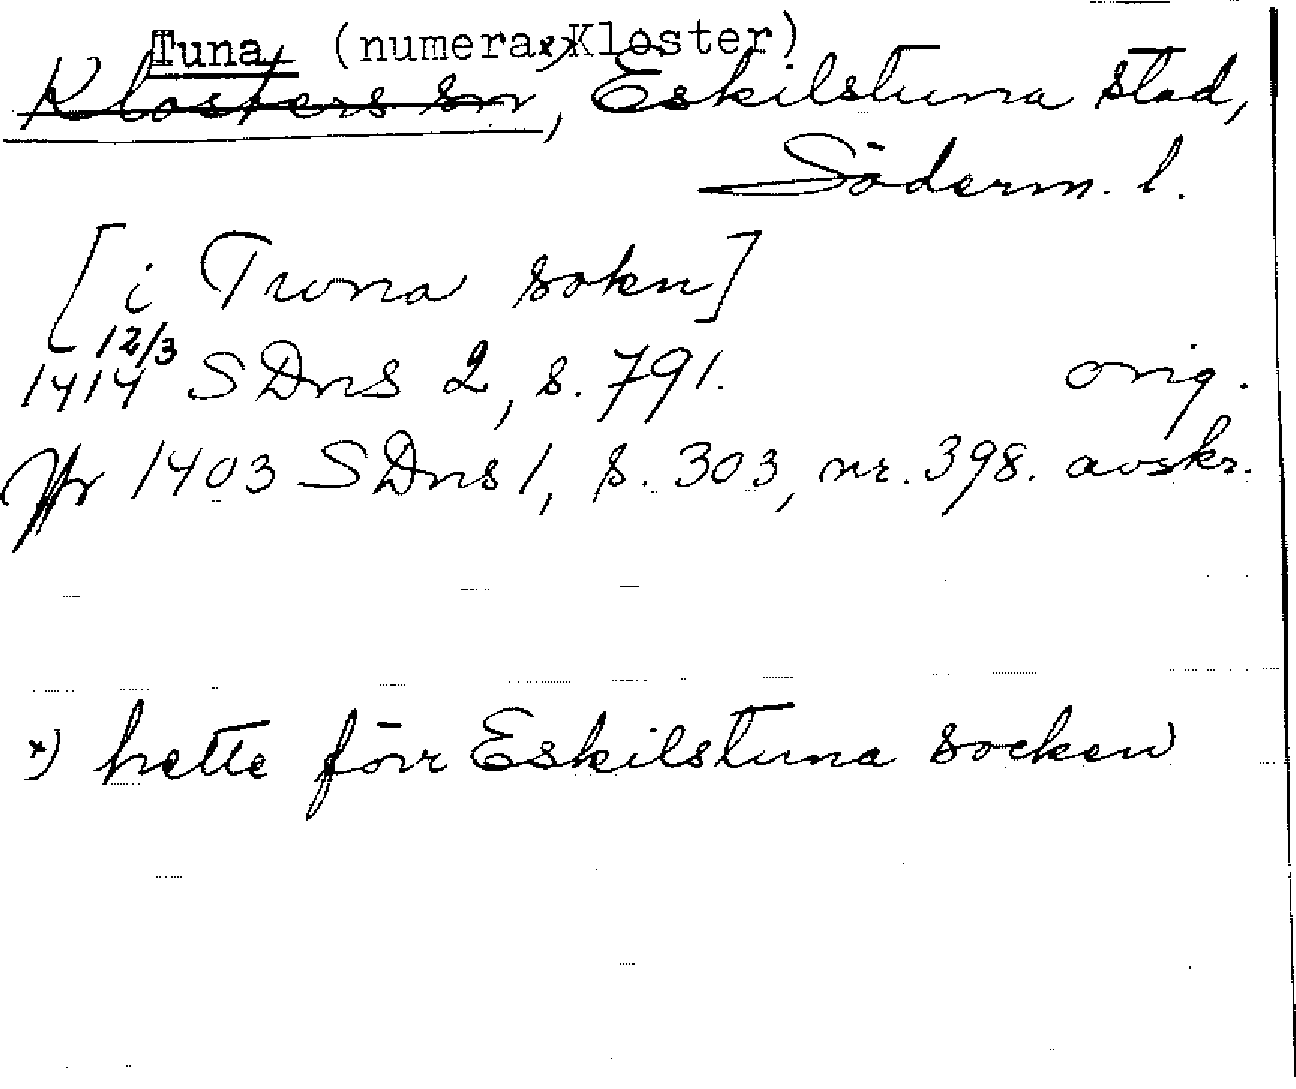 Tuna (numera x) Kloster)
Klosters sn, Eskilstuna stad,
Söderm. l.
[i Twna sokn]
12/3
1414 SDns 2, s. 791. orig.
Jfr 1403 SDns 1, s. 303, nr. 398. avskr.
x) hette förr Eskilstuna socken